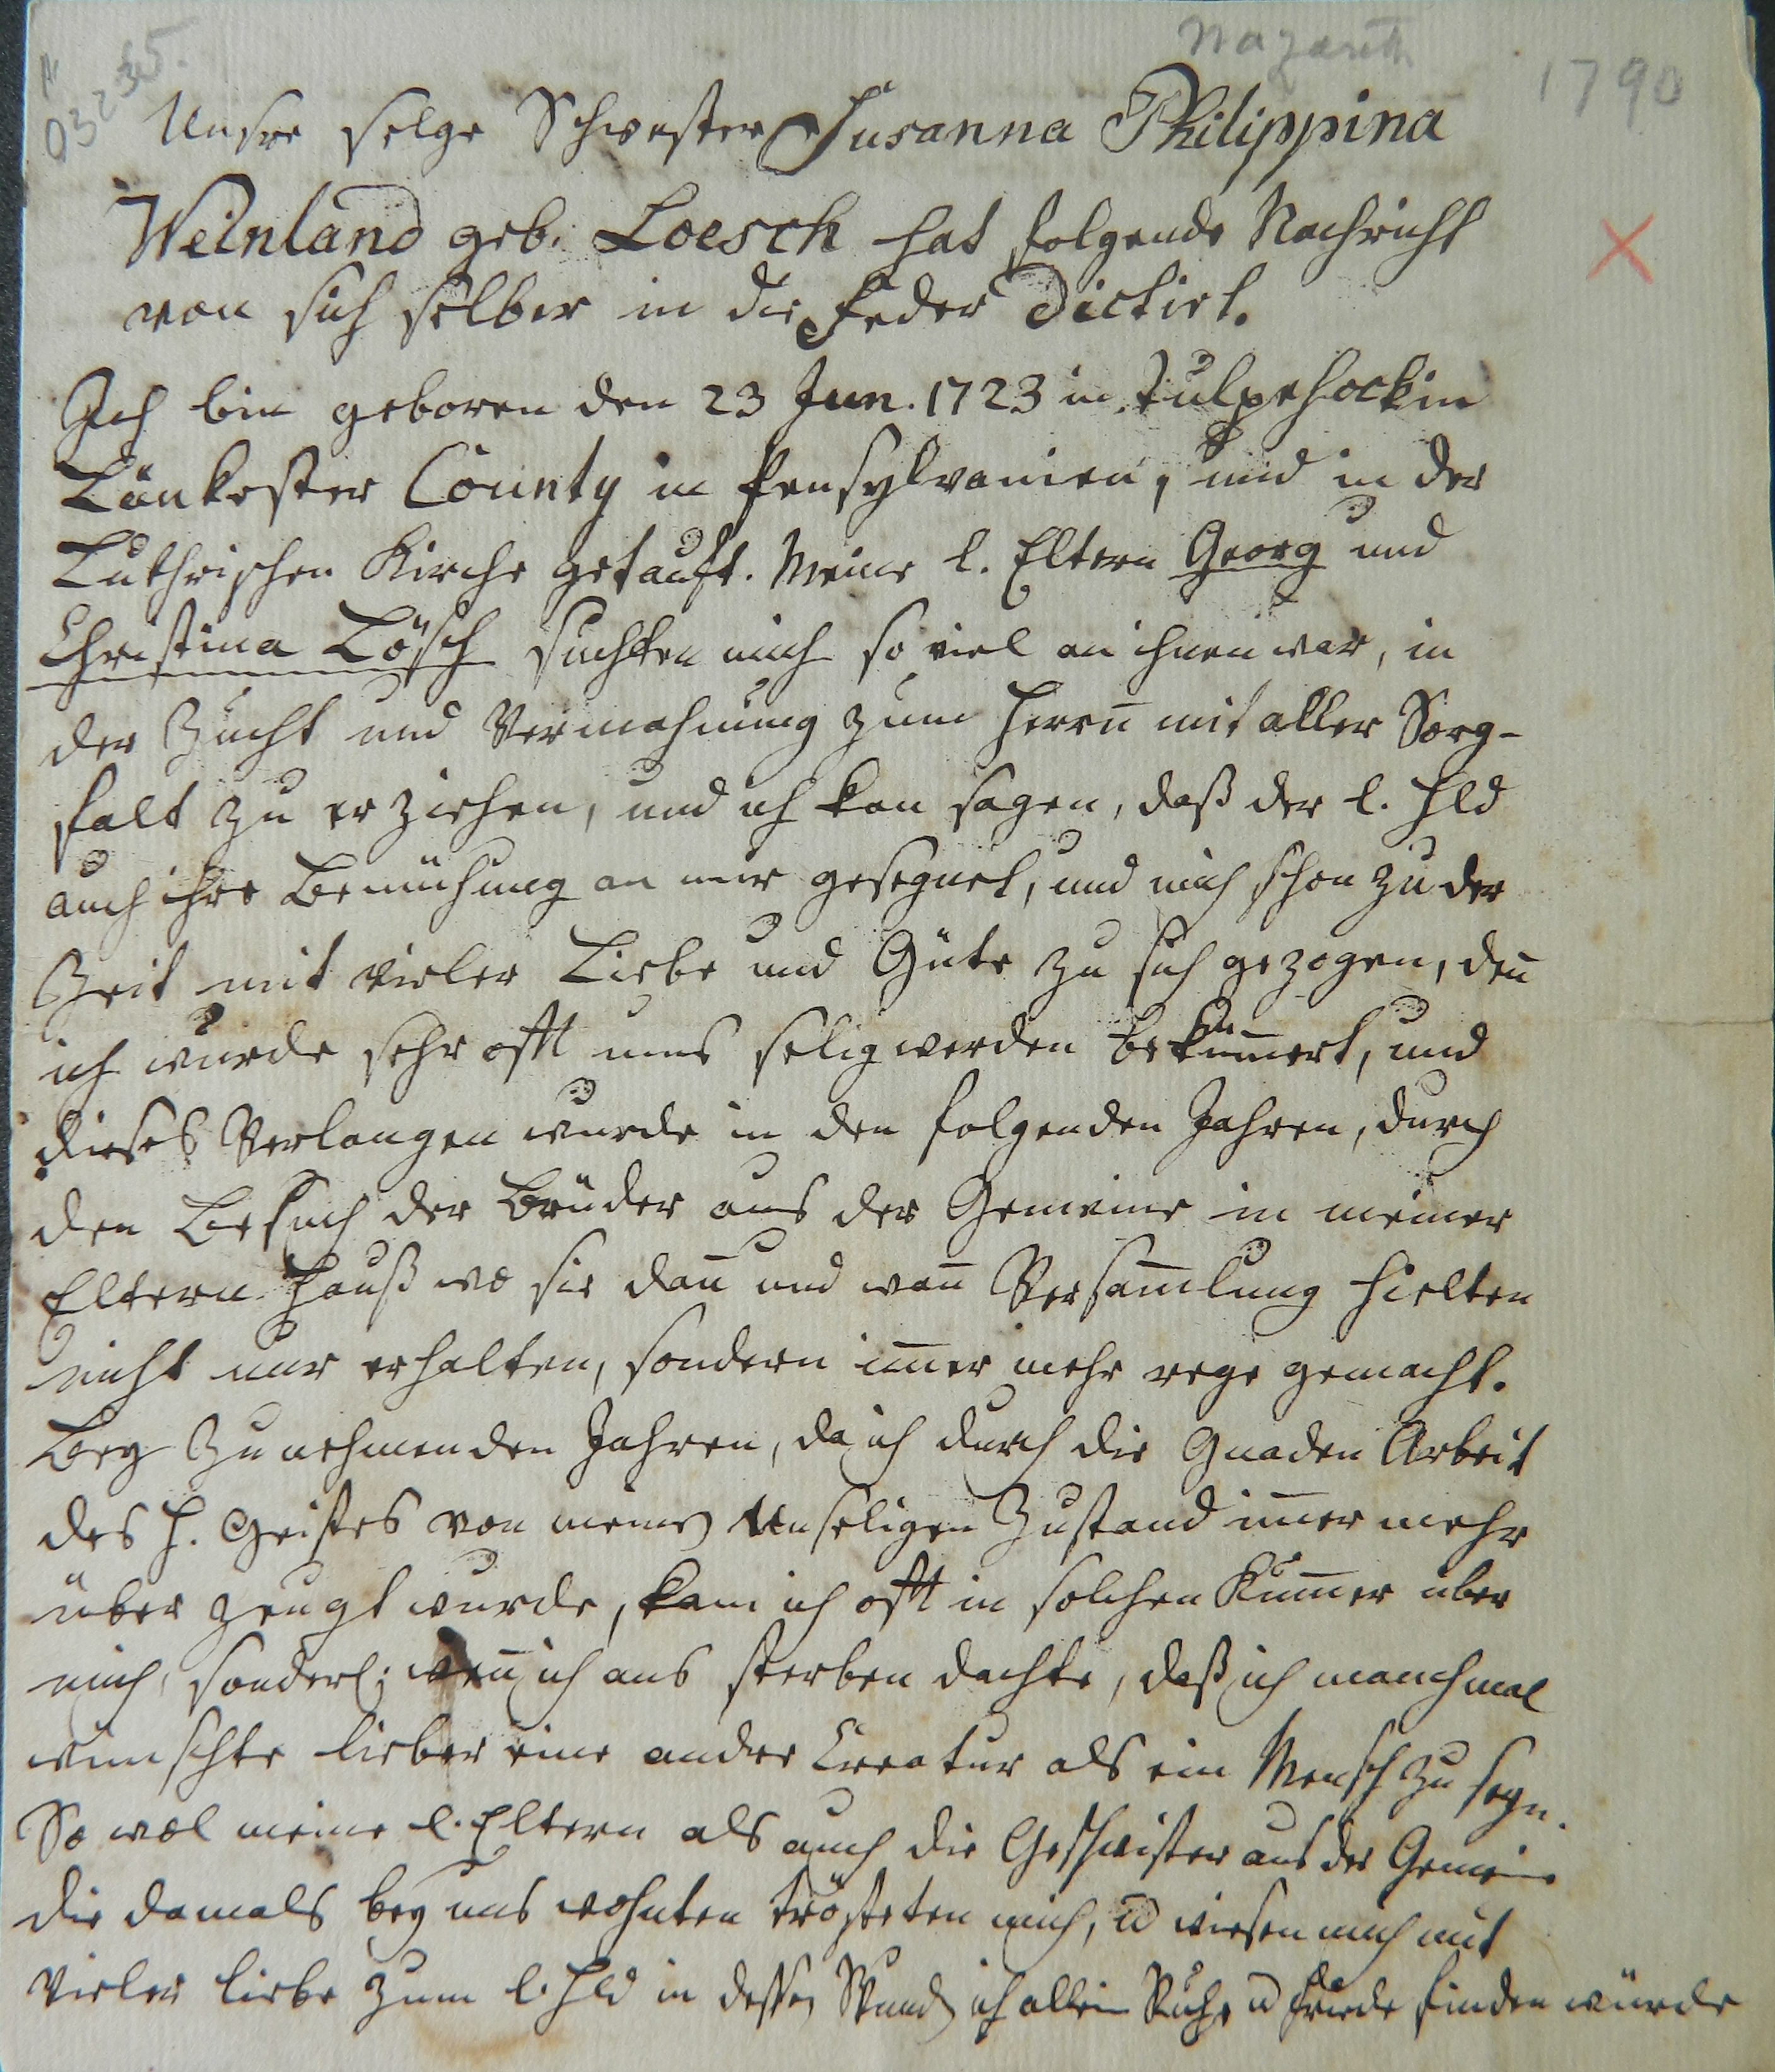 Nazareth
1790
03235.
Unsre selge Schwester Susanna Philippina
Weinland geb. Loesch hat folgende Nachricht
von sich selber in die Feder dictirt.
Ich bin geboren den 23 Jun. 1723 in Tulpehockin
Länkester County in Pensylvanien, und in der
Luthrischen Kirche getauft. Meine l. Eltern Georg und
Christina Lösch suchten mich so viel an ihnen war, in
der Zucht und Vermahnung zum Herrn̄ mit aller Sorg-
falt zu erziehen, und ich kan sagen, daß der l. Hld
auch ihre Bemühung an mir gesegnet, und mich schon zu der
Zeit mit vieler Liebe und Güte zu sich gezogen, den̄
ich wurde sehr offt ums selig werden bekūmert, und
dieses Verlangen wurde in den folgenden Jahren, durch
den Besuch der Brüder aus der Gemeine in meiner
Eltern Hauß wo sie dan̄ und wan̄ Versam̄lung hielten
nicht nur erhalten, sondern im̄er mehr rege gemacht.
Bey zunehmenden Jahren, da ich durch die Gnaden Arbeit
des H. Geistes von meinem Unseligen Zustand im̄er mehr
über zeugt wurde, kam ich offt in solchen Kum̄er über
mich, sonderl. wen̄ ich ans sterben dachte, daß ich manchmal
wünschte lieber eine andre Creatur als ein Mensch zu seyn.
So wol meine l. Eltern als auch die Geschwister aus der Gemeine
die damals bey uns wohnten trösteten mich, u wiesen mich mit
vieler liebe zum l. Hld in dessen Wunden ich allein Ruhe u Friede finden würde